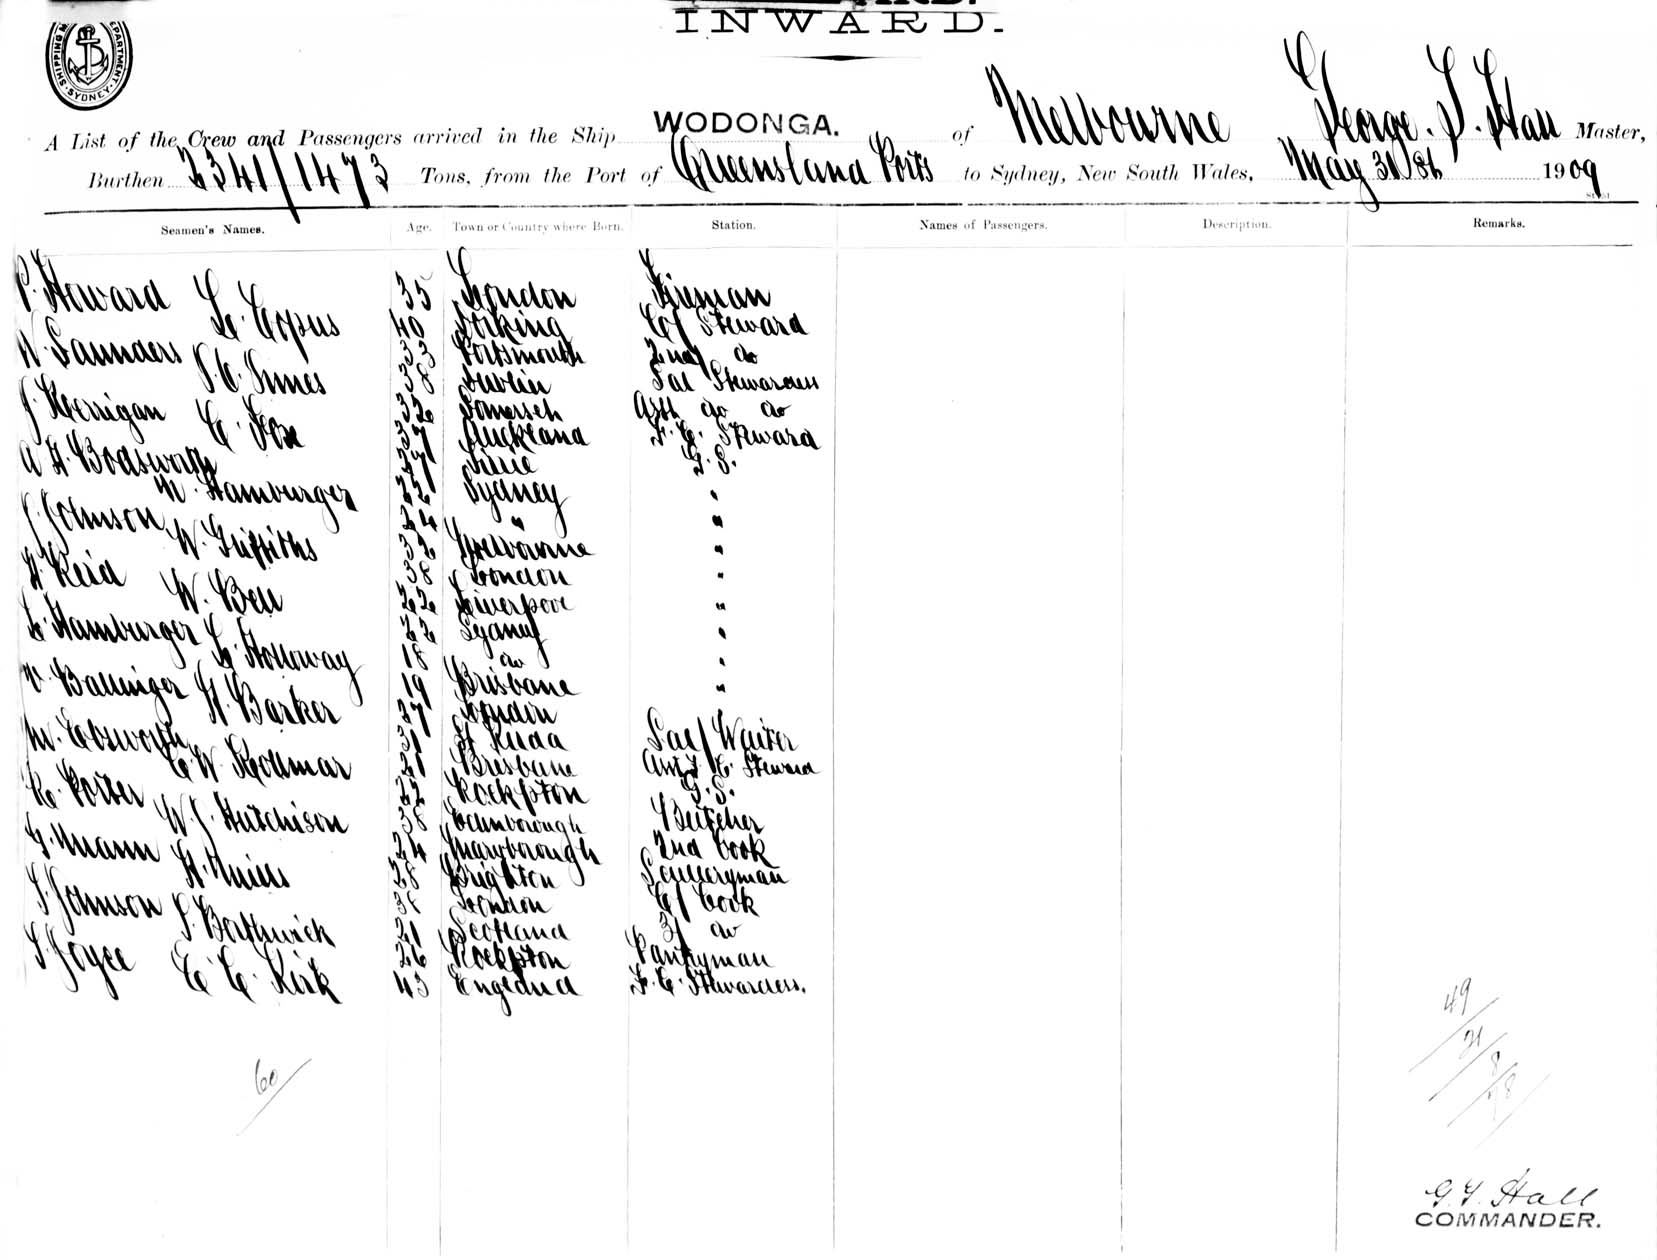 INWARD.
SHIPPING DEPARTMENT. SYDNEY.
A List of the Crew and Passengers arrived in the Ship WODONGA. of Melbourne George. S. Hall Master,
Burthen 2341/1473 Tons, from the Port of Queensland Ports to Sydney, New South Wales, May 31st 1909
Seamen's Names. Age. Town or Country where Born. Station. Names of Passengers. Description. Remarks.
P. Howard 35 London Fireman
L. Copus 40 Dorking Cf Steward
W. Saunders 33 Portsmouth 2nd do
P. C. Innes 38 Dublin Sal Stewardess
J. Kerrigan 32 Somerset Asst do do
C. Fox 37 Auckland F. C. Steward
A. H. Bodsworth 27 G. S.
M. Hamburger 22 Sydney "
J. Johnson 24 " "
W. Griffiths 32 Melbourne "
H. Reid 38 London "
W. Bell 22 Liverpool "
L. Hamburger 22 Sydney "
L. Holloway 18 do "
V. Ballinger 19 Brisbane "
H. Barker 37 London Sal Waiter
M. Ebsworth 31 St Kilda Sal/Waiter
C. W. Kollmar 21 Brisbane Asst F. C. Steward
R. Porter 22 Rockpton G. S.
W. J. Hutchison 38 Edinborough Butcher
G. Mann 24 Maryborough 2nd Cook
H. 28 Brighton Sculleryman
S. Johnson 38 London Cf Cook
S. Borthwick 21 Scotland 3/ do
S. Joyce 26 Rockpton Pantryman
E. C. Kirk 43 England F. C. Stewardess.
60
49
21
8
78
G. S. Hall
COMMANDER.